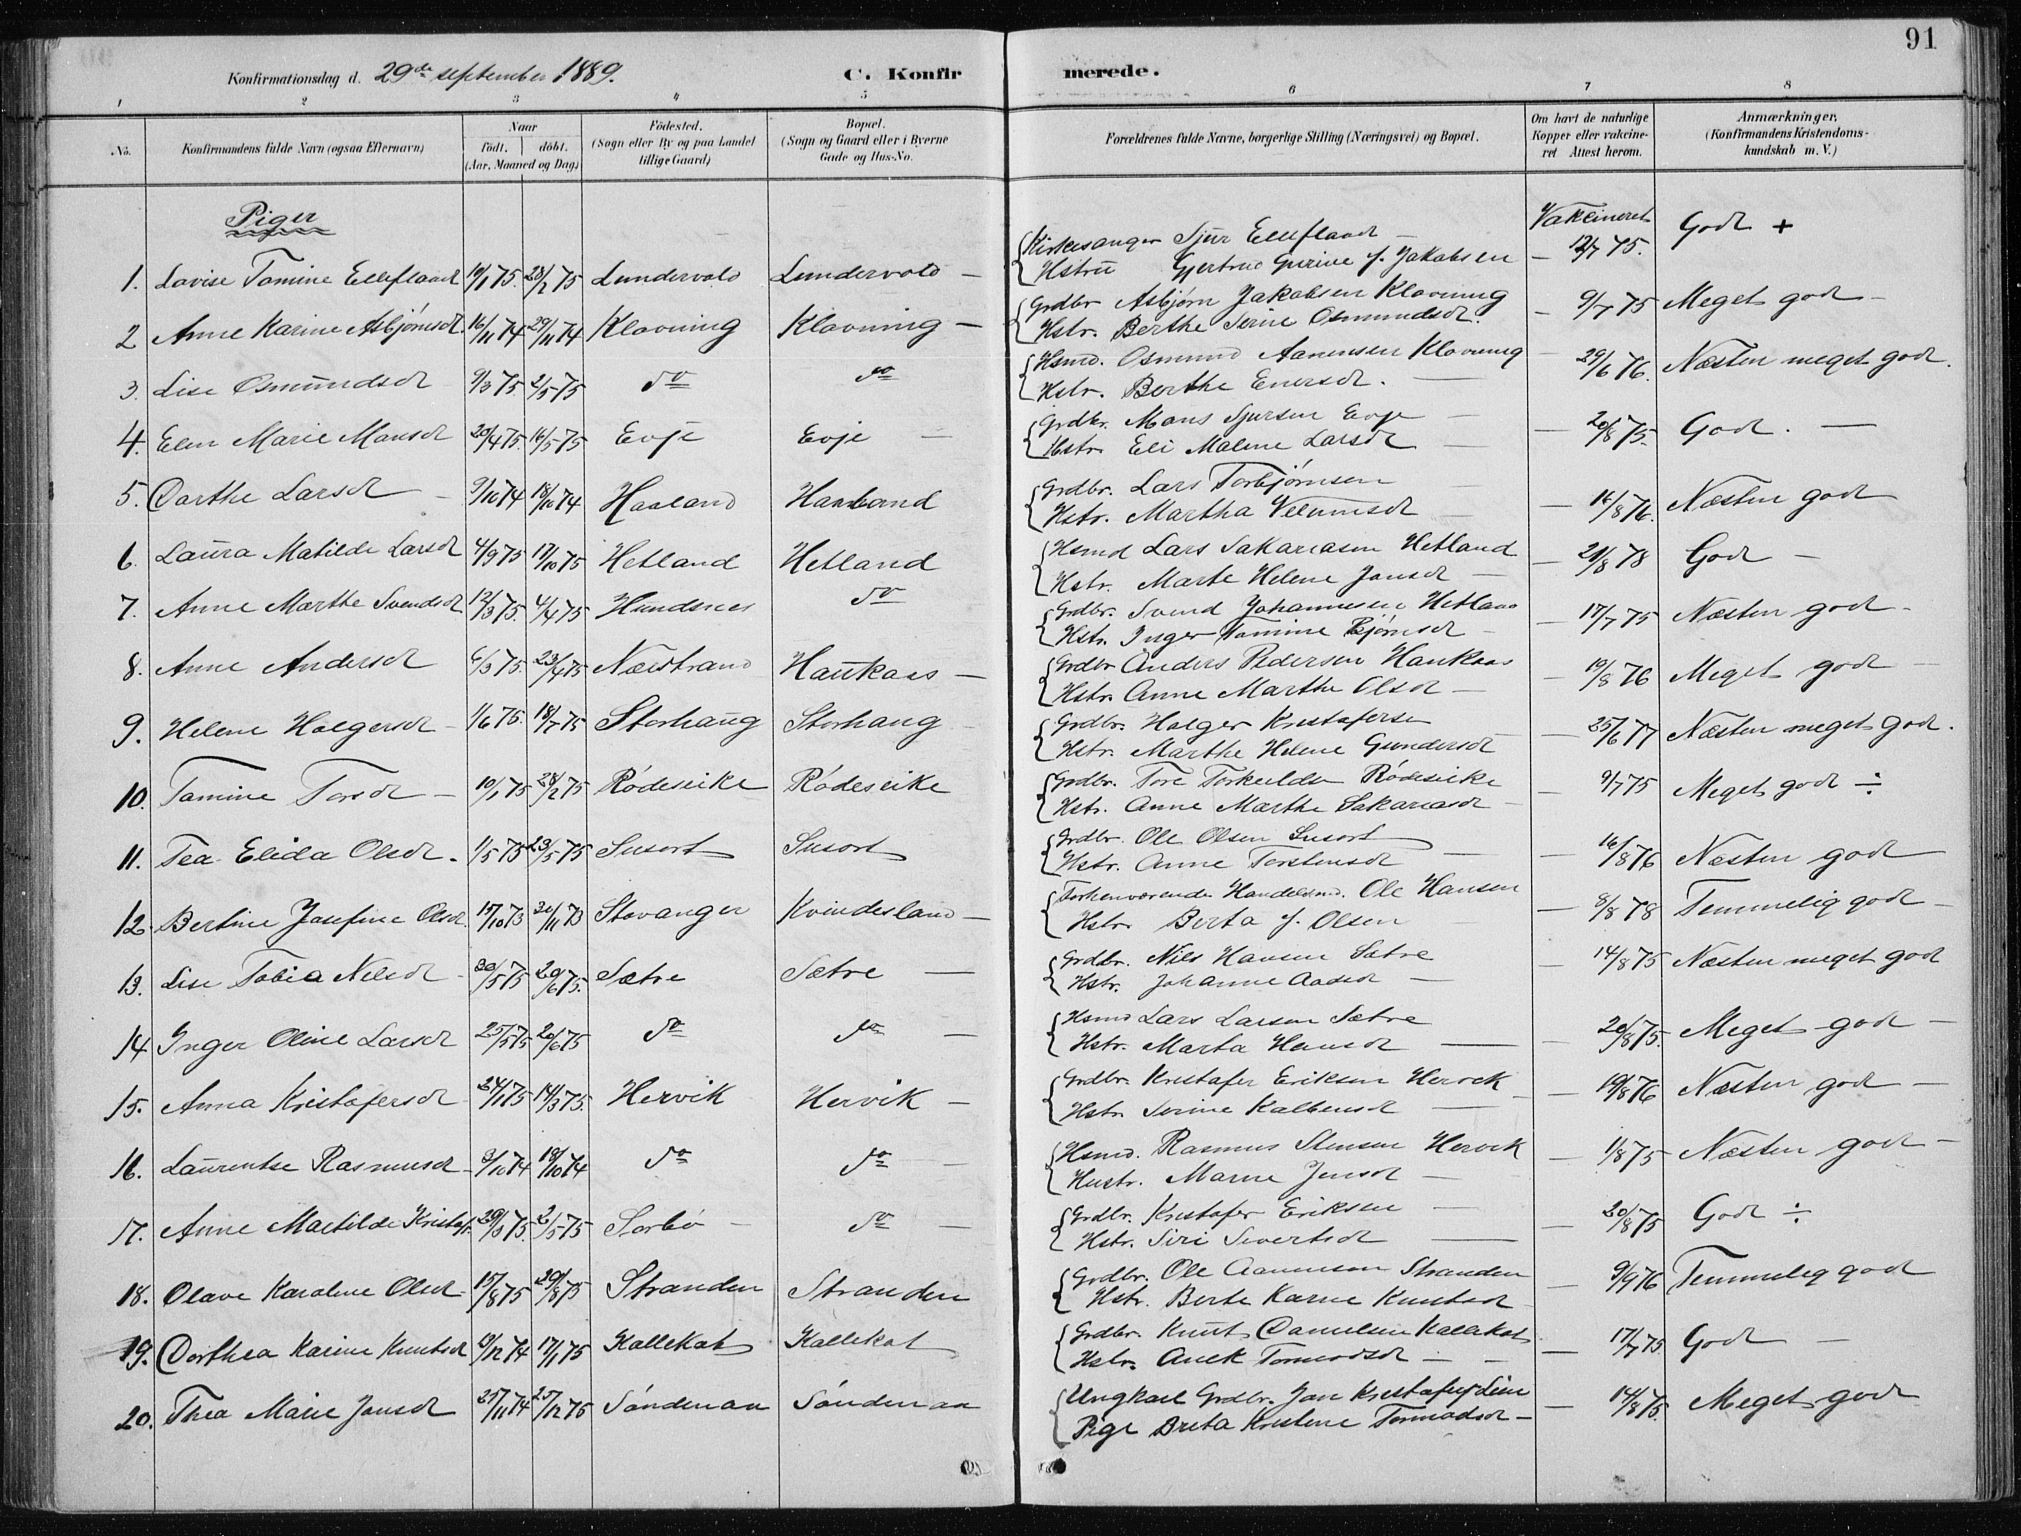 91
Konfirmationsdag d. 29de september 1889. C. Konfirmerede.
1 2 3 4 5 6 7 8
No. Konfirmandens fulde Navn (ogsaa Efternavn) Naar født. døbt. (Aar, Maaned og Dag) Fødested. (Sogn eller By og paa Landet tillige Gaard) Bopæl. (Sogn og Gaard eller i Byerne Gade og Hus-No. Forældrenes fulde Navne, borgerlige Stilling (Næringsvei) og Bopæl. Om havt de naturlige Kopper eller vakcineret Attest herom. Anmærkninger. (Konfirmandens Kristendomskundskab m. V.)
Piger
Vakcineret
1. Lovise Tomine Ellefland 19/1 75. 28/2 75 Lundervold Lundervold – Kirkesanger Sjur Ellefland – Hstru Gjertrud Gurine f. Jakobsen – 12/7 75. Godt +
2 Anne Karine Asbjørnsd 16/11 74 29/11 74 Klovning Klovning – Grdbr Asbjørn Jakobsen Klovning Hstr. Berthe Serine Osmundsd. – 9/7 75 Meget god –
3. Lise Osmundsd 9/3 75 2/5 75 do do Hsmd. Osmund Aanensen Klovning Hstr. Berthe Enersd. – 29/6 76. Næsten meget god.
4. Elen Marie Monsd 20/4 75. 16/5 75 Evje Evje – Grdbr. Mons Sjursen Evje Hstr. Eli Malene Larsd – 20/8 75. God. –
5. Dorthe Larsd – 9/10 74 18/10 74 Haaland Haaland Grdbr. Lars Torbjørnsen Hstr. Martha Velumsd – 16/8 76. Næsten god
6. Laura Matilde Larsd 4/9 75 17/10 75 Hetland Hetland Hsmd Lars Sakariasen Hetland Hstr. Marte Helene Jonsd – 21/8 78 God –
7. Anne Marthe Svendsd 12/3 75. 4/4 75 Hundsnes do Grdbr. Svend Johannesen Hetland Hstr. Inger Tomine Bjørnsd – 17/7 75 Næsten god –
8. Anne Andersd 6/3 75. 23/4 75 Nærstrand Haukaas – Grdbr Anders Pedersen Haukaas Hstr. Anne Marthe Olsd – 19/8 76 Meget god –
9. Helene Holgersd – 1/6 75. 18/7 75 Storhaug Storhaug Grdbr. Holger Kristofersen Hstr. Marthe Helene Gundersd – 25/6 77 Næsten meget god.
10. Tomine Torsd – 10/1 75 28/2 75 Rødesvike Rødesvike Grdbr. Tore Torkelds Rødesvike Hstr. Anne Marthe Sakariasd – 9/7 75 Meget god ÷
11. Tea Elida Olsd. 1/5 75 23/5 75 Susort Susort Grdbr. Ole Olsen Susort Hstr. Anne Torstensd – 16/8 76 Næsten god
12. Bertine Josefine Olsd. 15/10 73 30/11 73 Stavanger Kvindesland – Forhenværende Handelsmd. Ole Hansen Hstr. Berta f. Olsen – 8/8 78 Temmelig god –
13. Lise Tobia Nilsd 30/5 75 20/6 75. Sætre Sætre – Grdbr. Nils Hansen Sætre Hstr. Johanne Aadsd – 14/8 75 Næsten meget god
14 Inger Oline Larsd 25/5 75 20/6 75 do do – Hsmd Lars Larsen Sætre Hstr. Marta Hansd – 20/8 75. Meget god –
15. Anna Kristofersd 24/1 75 14/3 75. Hervik Hervik – Grdbr. Kristofer Eriksen Hervik Hstr Serine Kolbensd – 19/8 76 Næsten god –
16. Laurentse Rasmusd – 3/10 74 18/10 74 do do – Hsmd. Rasmus Stensen Hervik Hustr. Marne Jensd – 1/8 75 Næsten god –
17. Anne Martilde Kristofr. 29/3 75. 2/5 75 Sørbø – do – Grdbr. Kristofer Eriksen Hstr. Siri Sivertsd – 20/8 75 God ÷
18. Olave Karoline Olsd 15/8 75 29/8 75 Stranden Stranden Grdbr. Ole Aanensen Stranden Hstr. Berte Karine Knutsd – 9/9 76 Temmelig god
19. Dorthea Karine Knutsd 9/12 74 17/1 75 Kallekot Kallekot Grdbr. Knut Danielsen Kallekot Hstr. Anek Tormodsd – 17/7 75. God –
20. Thea Marie Jonsd 25/11 74 25/12 75 Søndenaa Søndenaa Ungkarl Grdbr. Jon Kristofersen Lein Pige Breta Kristene Tormodsd – 14/8 75. Meget god